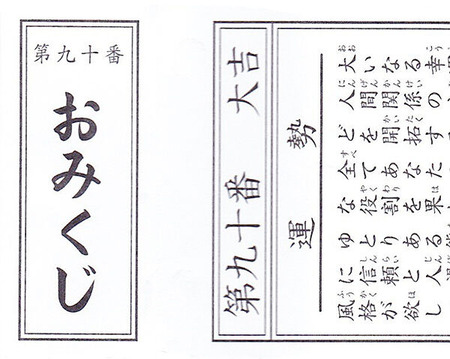 第九十番
おみくじ
第九十番　大吉
運勢
大いなる幸
人間関係の
どを開拓す
全てあなた
な役割を果
ゆとりある
に信頼と人
風格が欲し